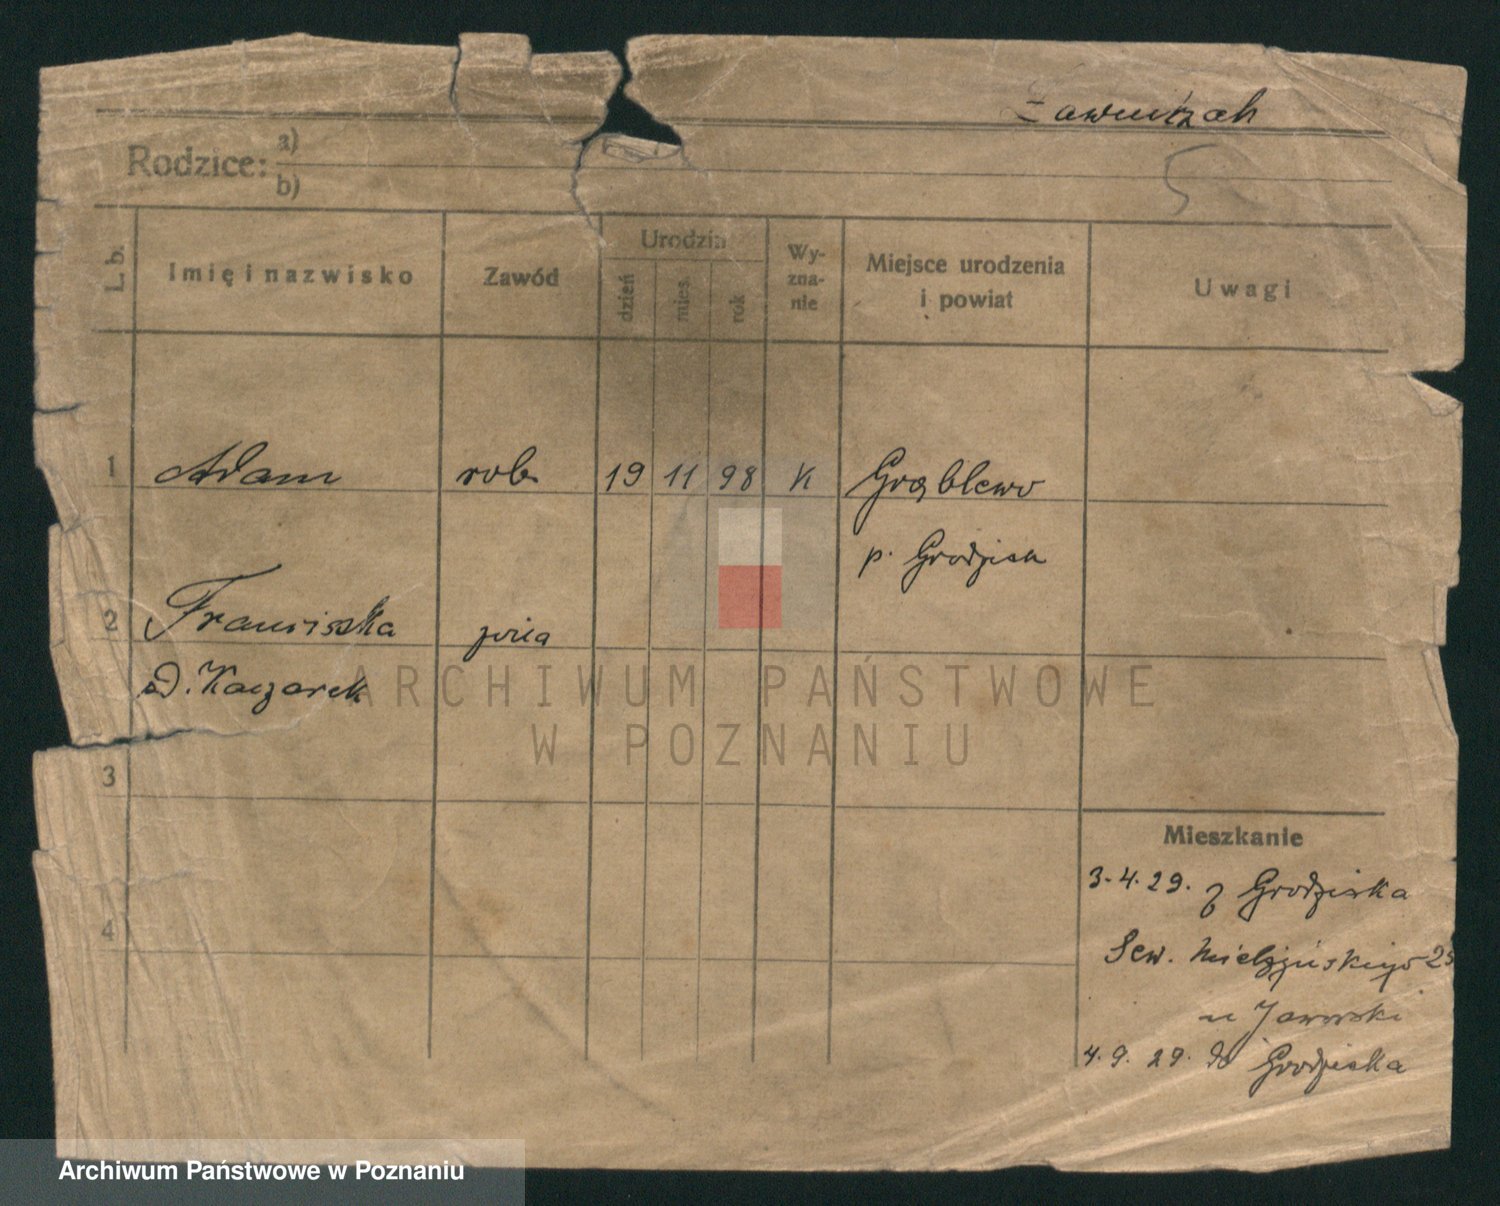 Rodzice: a)
b)
L. b.
Imię i nazwisko
Zawód
Urodzin
dzień
mies.
rok
Wy-
zna-
nie
Miejsce urodzenia
i powiat
Uwagi
1 Adam rob. 19 11 98 K Grąblewo
p. Grodzisk
2 Franciszka
D. Kaczarek
3
4
Mieszkanie
3.4.29. z Grodziska
Sew. Mielżyńskiego
u Jaworski
4.9.29. do Grodziska
ARCHIWUM PAŃSTWOWE
W POZNANIU
Archiwum Państwowe w Poznaniu